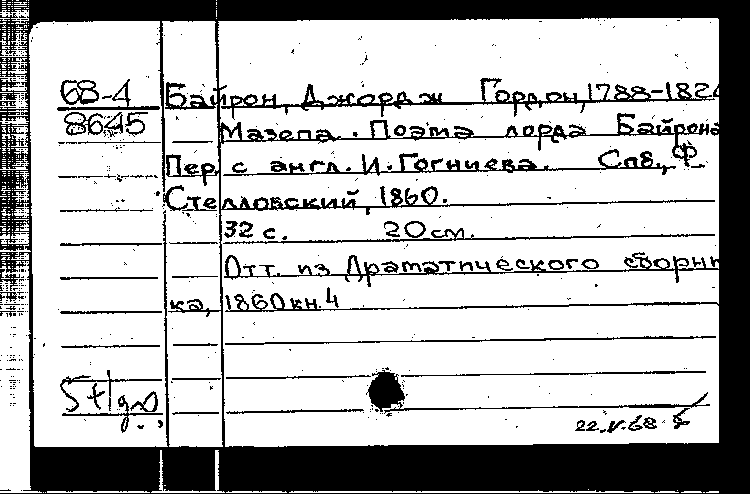 68-4 Байрон, Джордж Гордон, 1788-182
8645 Мазепа. Поэма лорда Байрона
Пер. с англ. И. Гогниева. Спб., Ф.
Стелловский, 1860.
32 с. 20 см.
Отт. из Драматического сборни
ка, 1860 кн. 4
22.V.68